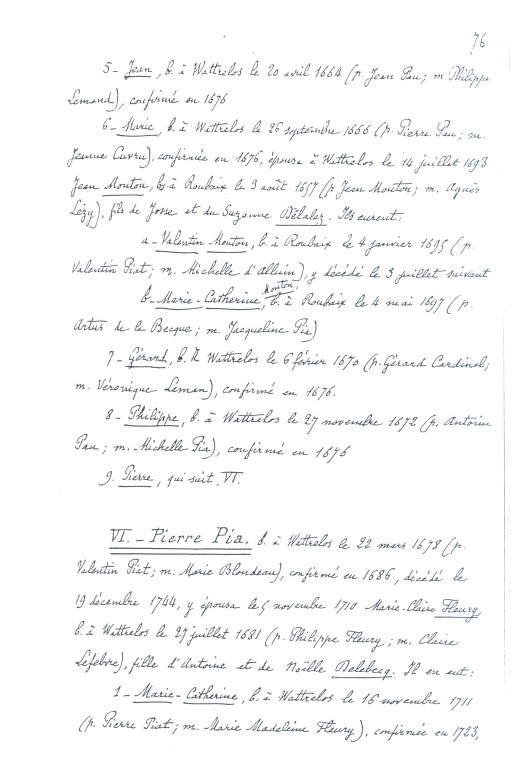 76
5- Jean, b. à Wattrelos le 20 avril 1664 (p. Jean Pau; m. Philippe
Lemand), confirmé en 1676
6- Marie, b. à Wattrelos le 26 septembre 1666 (p. Pierre Pau; m.
Jeanne Cuvru), confirmée en 1676, épousa à Wattrelos le 14 juillet 1693
Jean Mouton, b. à Roubaix le 3 août 1657 (p Jean Mouton; m. Agnès
Lézy), fils de Josse et du Suzanne Délalez. Ils eurent:
a- Valentin Mouton, b. à Roubaix le 4 janvier 1695 (p.
Valentin Piat; m. Michelle d'Alluin), y décédé le 3 juillet suivant
b- Marie-Catherine Mouton, b. à Roubaix le 4 mai 1697 (p.
Artus de le Becque; m. Jacqueline Pia)
7- Gérard, b. à Wattrelos le 6 février 1670 (p. Gérard Cardinal;
m. Véronique Leman), confirmé en 1676.
8- Philippe, b. à Wattrelos le 27 novembre 1672 (p. Antoine
Pau; m. Michelle Pia), confirmé en 1676
9. Pierre, qui suit, VI.
VI.- Pierre Pia, b. à Wattrelos le 22 mars 1678 (p.
Valentin Piat; m. Marie Blondeau), confirmé en 1686, décédé le
19 décembre 1744, y épousa le 5 novembre 1710 Marie-Claire Fleury
b. à Wattrelos le 27 juillet 1681 (p. Philippe Fleury; m. Claire
Lefebvre), fille d'Antoine et de Noëlle Delebecq. Il en eut:
1- Marie-Catherine, b. à Wattrelos le 16 novembre 1711
(p. Pierre Piat; m. Marie Madeleine Fleury), confirmée en 1723,